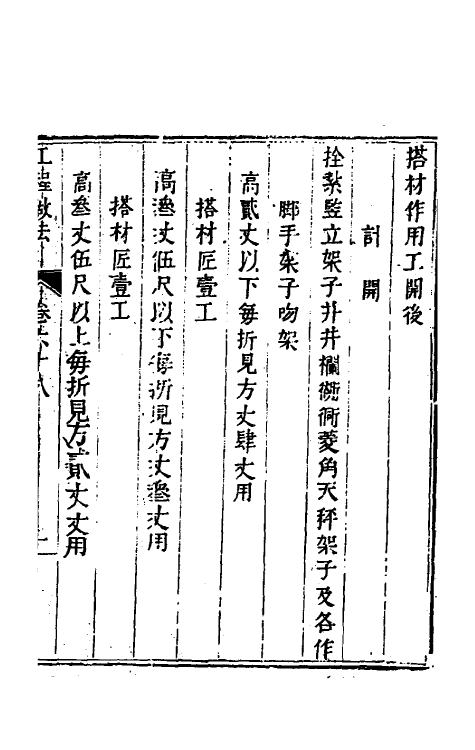 搭材作用工開後
計開
拴紥竪立架子井井欄
菱角天秤架子及各作
脚手架子吻架
高貳丈以下每折見方丈肆丈用
搭材匠壹工
高叁丈伍尺以下每折見方丈叁丈用
搭材匠壹工
高叁丈伍尺以上每折見方貳丈丈用
工程做法